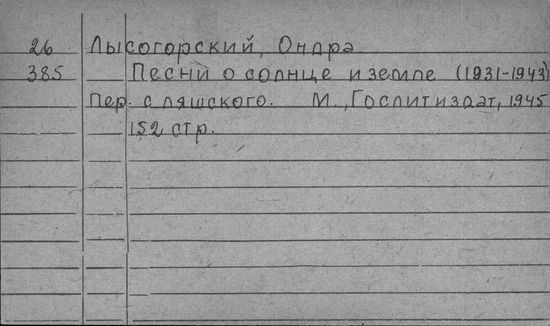 26 Лысогорский, Ондра
385 Песни о солнце и земле (1931-1943)
Пер. с ляшского. М., Гослитиздат, 1945
152 стр.